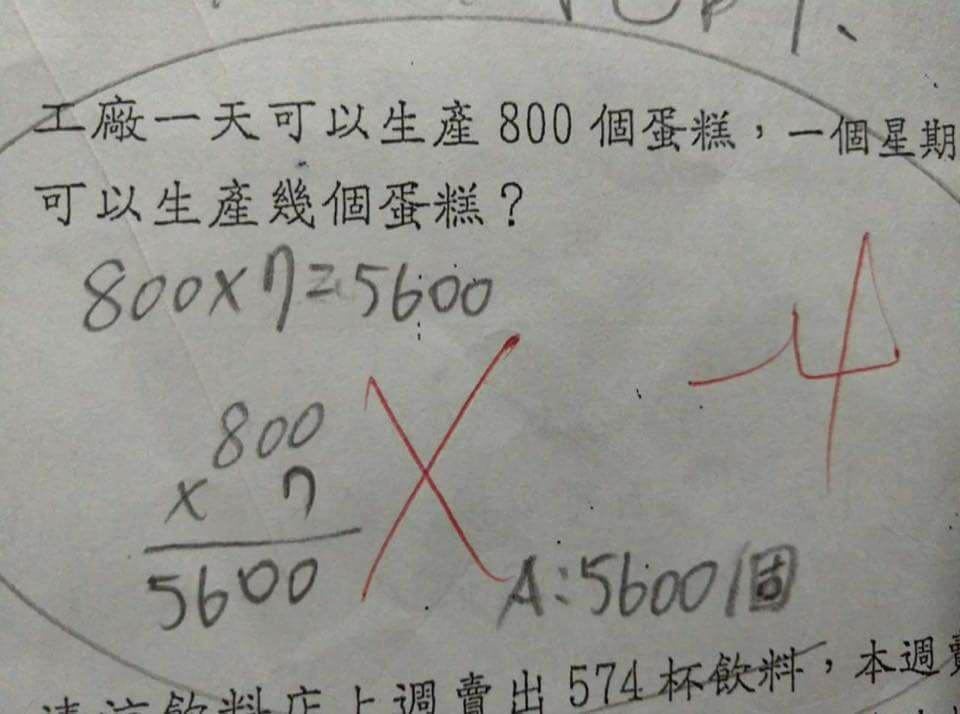 工廠一天可以生產 800 個蛋糕，一個星期
可以生產幾個蛋糕？
800×7=5600
-4
800
× 7
5600
A:5600個
飲料店上週賣出 574 杯飲料，本週賣